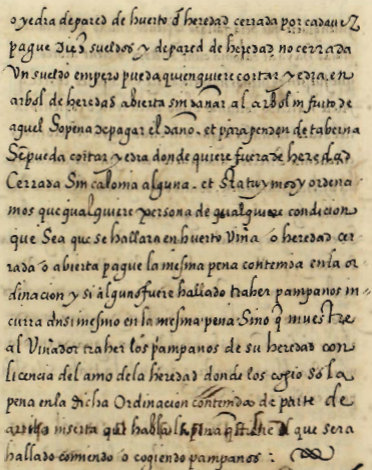 o yedra de pared de huerto o heredad cerrada por cada vez
pague diez sueldos y de pared de heredad no cerrada
Vn sueldo empero pueda quien quiere cortar yedra en
arbol de heredad abierta sin dañar al arbol ni fruto de
aquel So pena de pagar el daño. et para pendon de taberna
Se pueda cortar yedra donde quiere fuera de heredad
Cerrada Sin calonia alguna. et Statuymos y ordena
mos que qualquiere persona de qualquiere condicion
que Sea que se hallara en huerto Viña o heredad cer
rada o abierta pague la mesma pena contenida en la or
dinacion y si alguno fuere hallado traher pampanos in=
curra ansi mesmo en la mesma pena Sino q muestre
al Viñador traher los pampanos de su heredad con
licencia del amo de la heredad donde los cogio So la
pena en la dicha Ordinacion contenida de parte de
arriba inserta que habla el que sera
hallado comiendo o cogiendo pampanos: